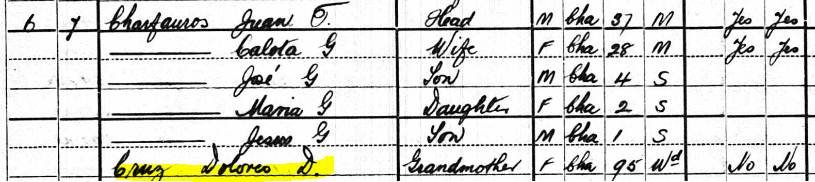 6 7 Charfauros Juan T. Head M Cha 37 M Yes Yes
Calota G Wife F Cha 28 M Yes Yes
José G Son M Cha 4 S
Maria G Daughter F Cha 2 S
Jesus G Son M Cha 1 S
Cruz Dolores D. Grandmother F Cha 95 Wd No No